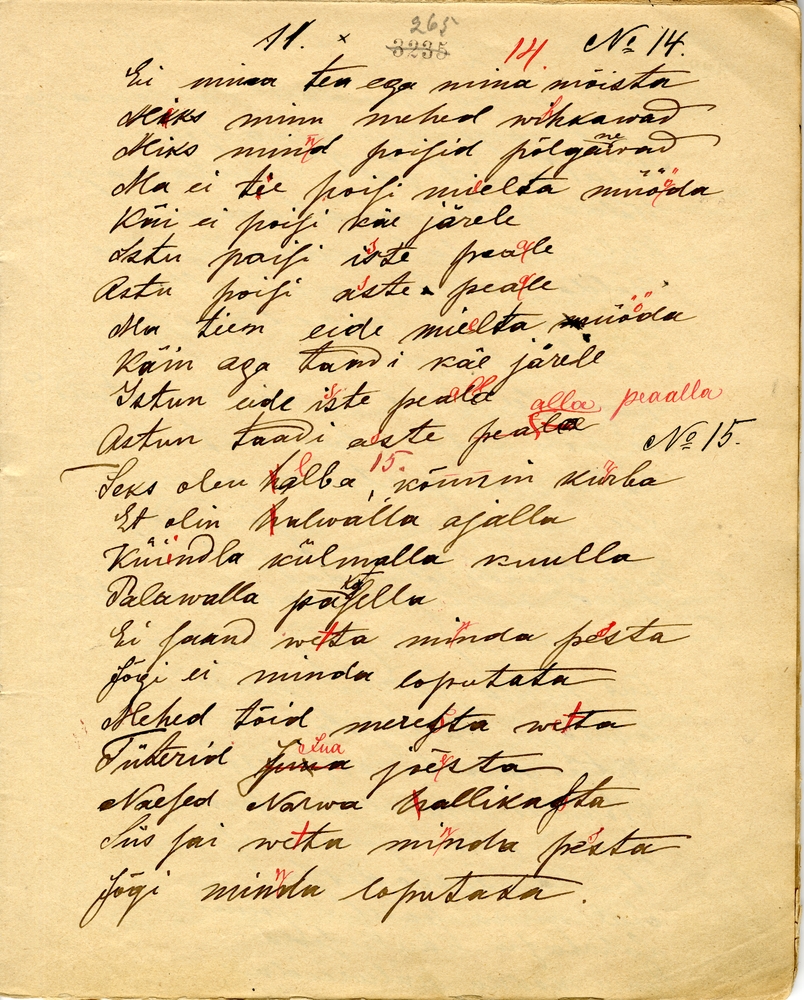 265
11. × 3235 14. № 14.
Ei minna tea ega mina mõista
Miks minu mehed wihkawad
Miks mind poisid põlgnewad
Ma ei tee poisi mielta müöda
Käi ei poisi käe järele
Istu poisi iste peale
Astu poisi aste peale
Ma tien eide mielta müöda
Käin aga taadi käe järele
Istun eide iste peale
alla peaalla
Astun taadi aste peale
№ 15.
15.
Seks olen halba, kõnnin kürba
Et olin halwalla ajalla
Küindla külmalla kuulla
Palawalla päiksella
Ei saand wetta minda pesta
Jõgi ei minda loputata
Mehed tõid meresta wetta
Tüterid Jõua jõesta
Naesed Narwa hallikasta
Siis sai wetta minda pesta
Jõgi minda loputada.